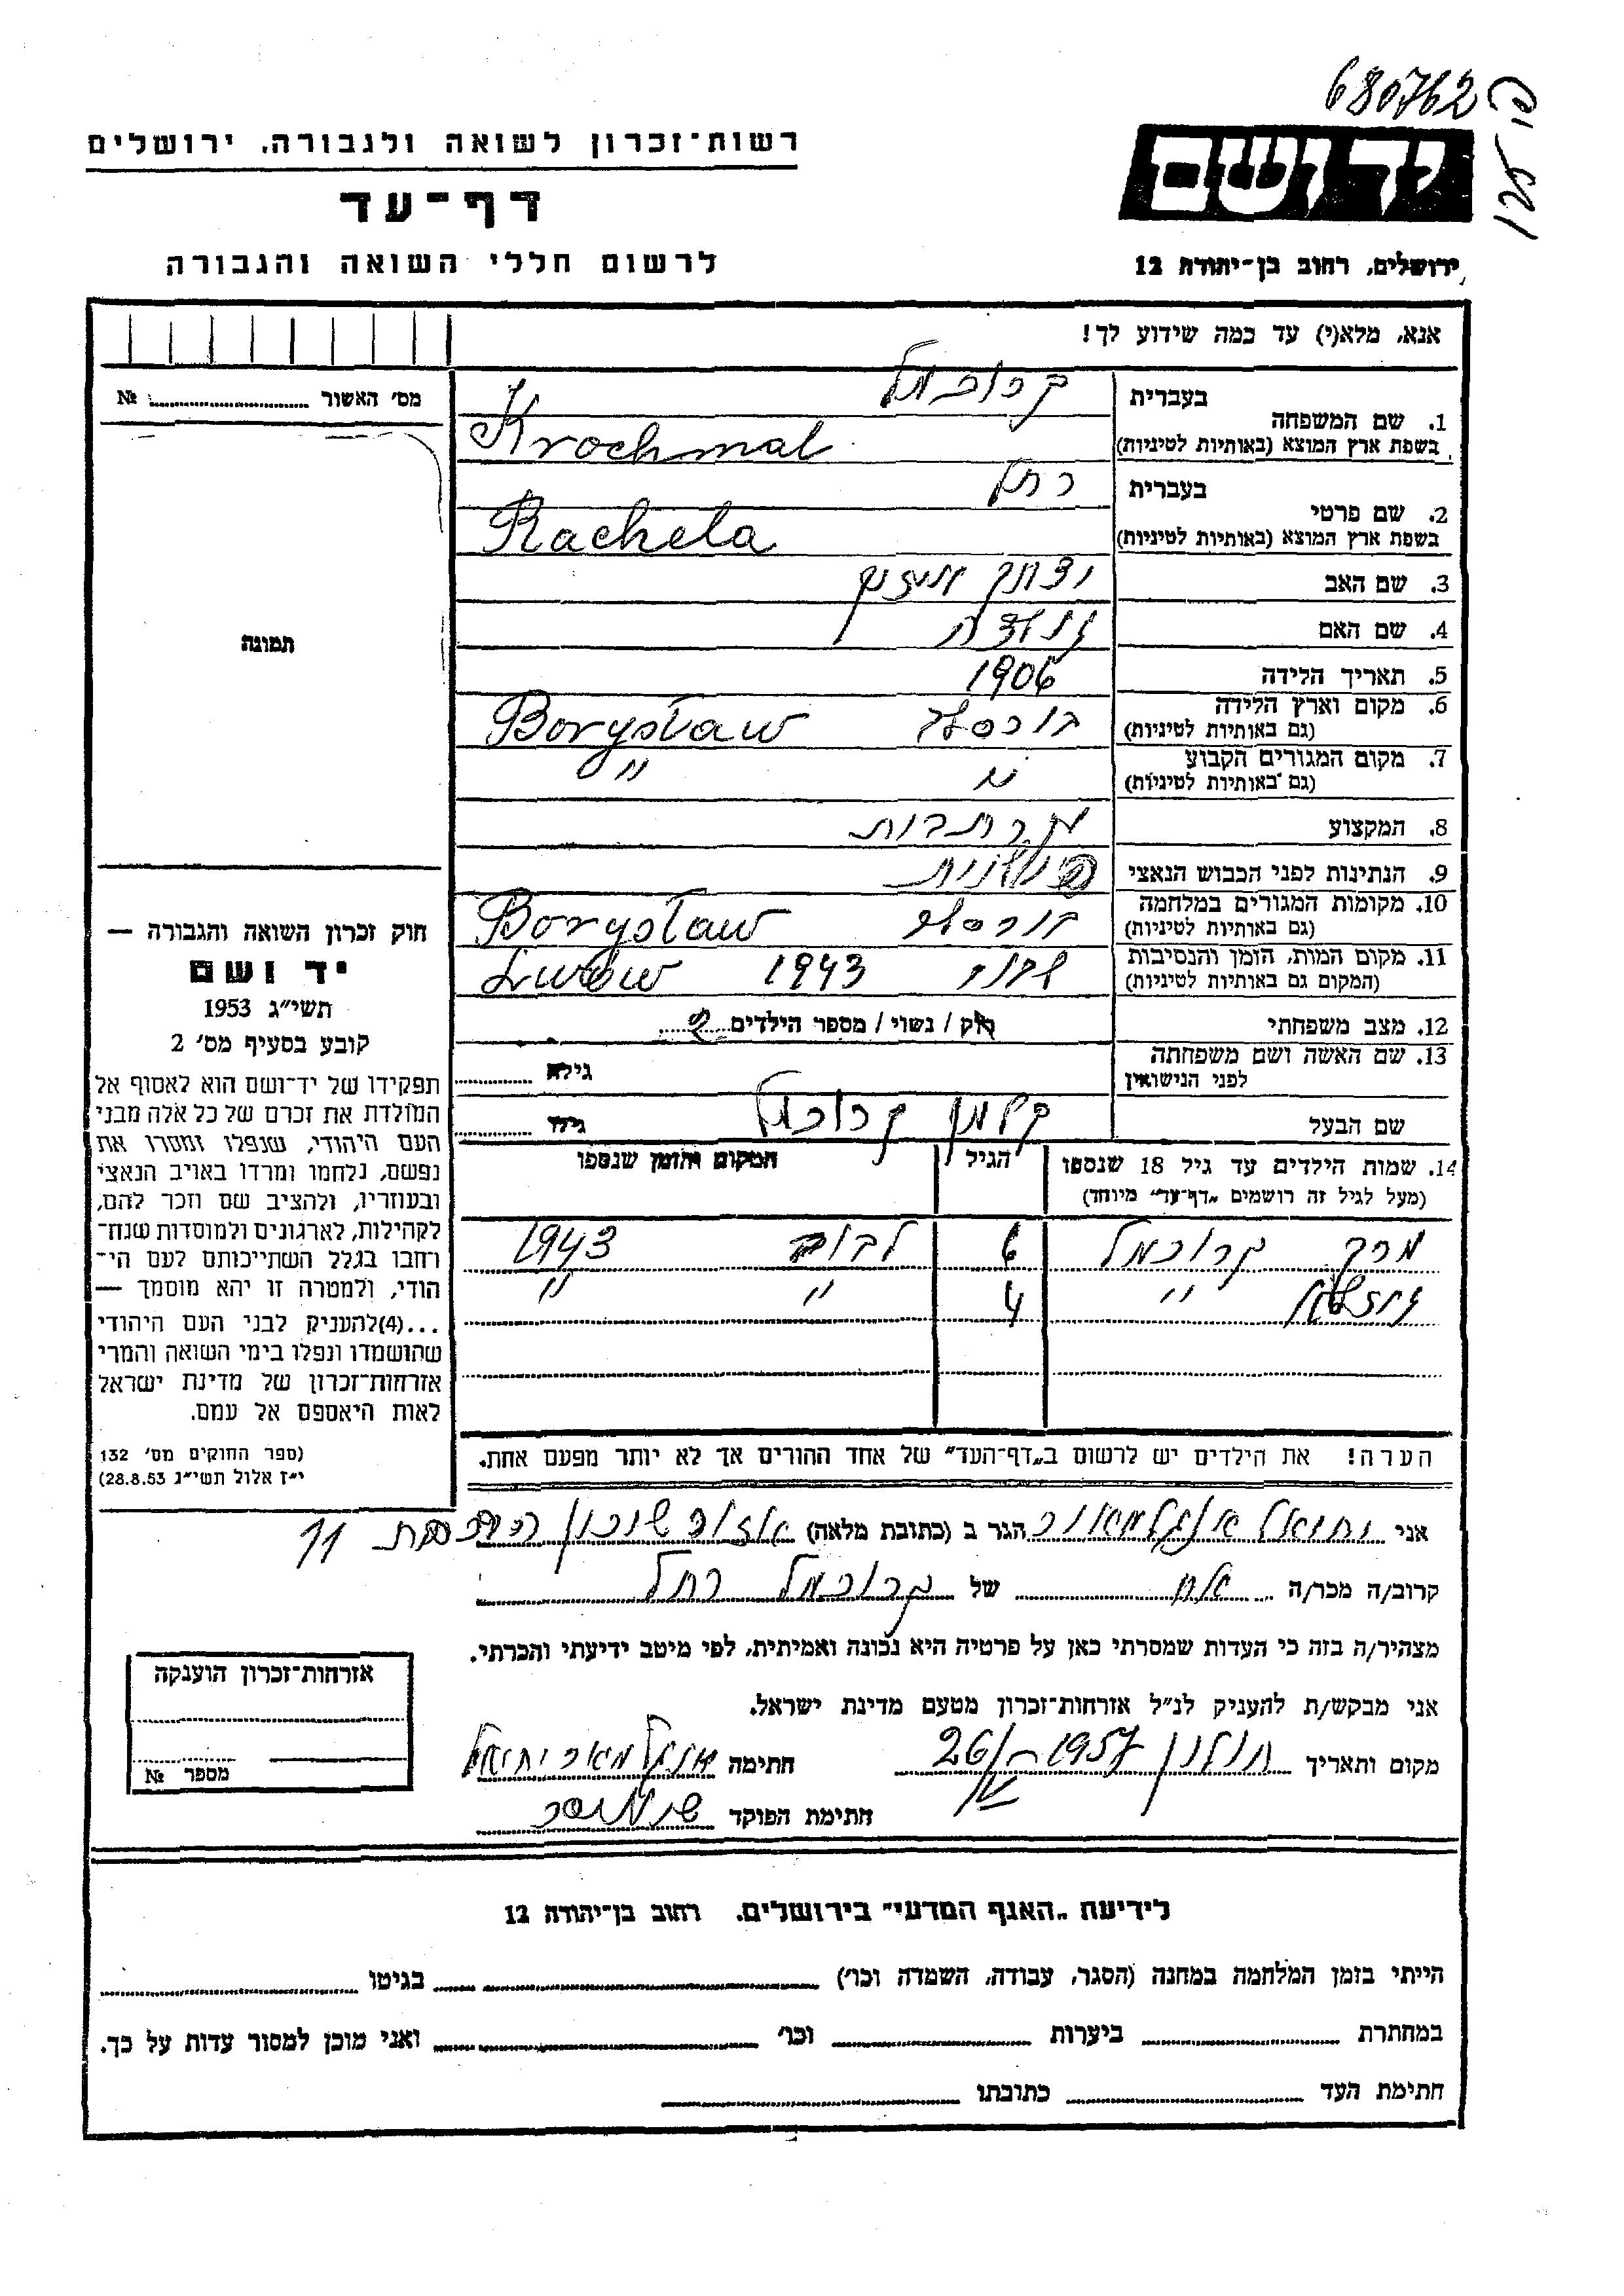 680762
רשות־זכרון לשואה ולגבורה, ירושלים
יד ושם
דף־עד
לרשום חללי השואה והגבורה
ירושלים, רחוב בן־יהודה 12
אנא, מלא(י) עד כמה שידוע לך!
מס׳ האשור № 
בעברית קרוכמל
1. שם המשפחה
בשפת ארץ המוצא (באותיות לטיניות) Krochmal
בעברית רחל
2. שם פרטי
בשפת ארץ המוצא (באותיות לטיניות) Rachela
3. שם האב יצחק
4. שם האם
תמונה
5. תאריך הלידה 1906
6. מקום וארץ הלידה
(גם באותיות לטיניות) בוריסלב Borysław
7. מקום המגורים הקבוע
(גם באותיות לטיניות) " "
8. המקצוע
9. הנתינות לפני הכבוש הנאצי פולנית
10. מקומות המגורים במלחמה
(גם באותיות לטיניות) בוריסלב Borysław
11. מקום המות, הזמן והנסיבות
(המקום גם באותיות לטיניות) 1943 Lwów
12. מצב משפחתי רוק / נשוי / מספר הילדים 2
13. שם האשה ושם משפחתה
לפני הנישואין גילה
שם הבעל קלמן קרוכמל גילו
14. שמות הילדים עד גיל 18 שנספו הגיל המקום והזמן שנספו
(מעל לגיל זה רושמים „דף־עד״ מיוחד)
מרק קרוכמל 6 לבוב 1943
" 4 " "
הערה! את הילדים יש לרשום ב„דף־העד״ של אחד ההורים אך לא יותר מפעם אחת.
חוק זכרון השואה והגבורה —
יד ושם
תשי״ג 1953
קובע בסעיף מס׳ 2
תפקידו של יד־ושם הוא לאסוף אל
המולדת את זכרם של כל אלה מבני
העם היהודי, שנפלו ומסרו את
נפשם, נלחמו ומרדו באויב הנאצי
ובעוזריו, ולהציב שם וזכר להם,
לקהילות, לארגונים ולמוסדות שנח־
רחבו בגלל השתייכותם לעם הי־
הודי, ולמטרה זו יהא מוסמך —
...(4)להעניק לבני העם היהודי
שהושמדו ונפלו בימי השואה והמרי
אזרחות־זכרון של מדינת ישראל
לאות היאספם אל עמם.
(ספר החוקים מס׳ 132
י״ז אלול תשי״ג 28.8.53)
אני יחיאל אנגלמאיר הגר ב (כתובת מלאה) אזור שיכון 11
קרוב/ה מכר/ה אח של קרוכמל רחל
מצהיר/ה בזה כי העדות שמסרתי כאן על פרטיה היא נכונה ואמיתית, לפי מיטב ידיעתי והכרתי.
אני מבקש/ת להעניק לנ״ל אזרחות־זכרון מטעם מדינת ישראל.
מקום ותאריך חולון 1957 26/ חתימה אנגלמאיר יחיאל
חתימת הפוקד
אזרחות־זכרון הוענקה
מספר №
לידיעת „האגף המדעי״ בירושלים, רחוב בן־יהודה 12
הייתי בזמן המלחמה במחנה (הסגר, עבודה, השמדה וכו׳) בגיטו
במחתרת ביערות וכו׳ ואני מוכן למסור עדות על כך.
חתימת העד כתובתו